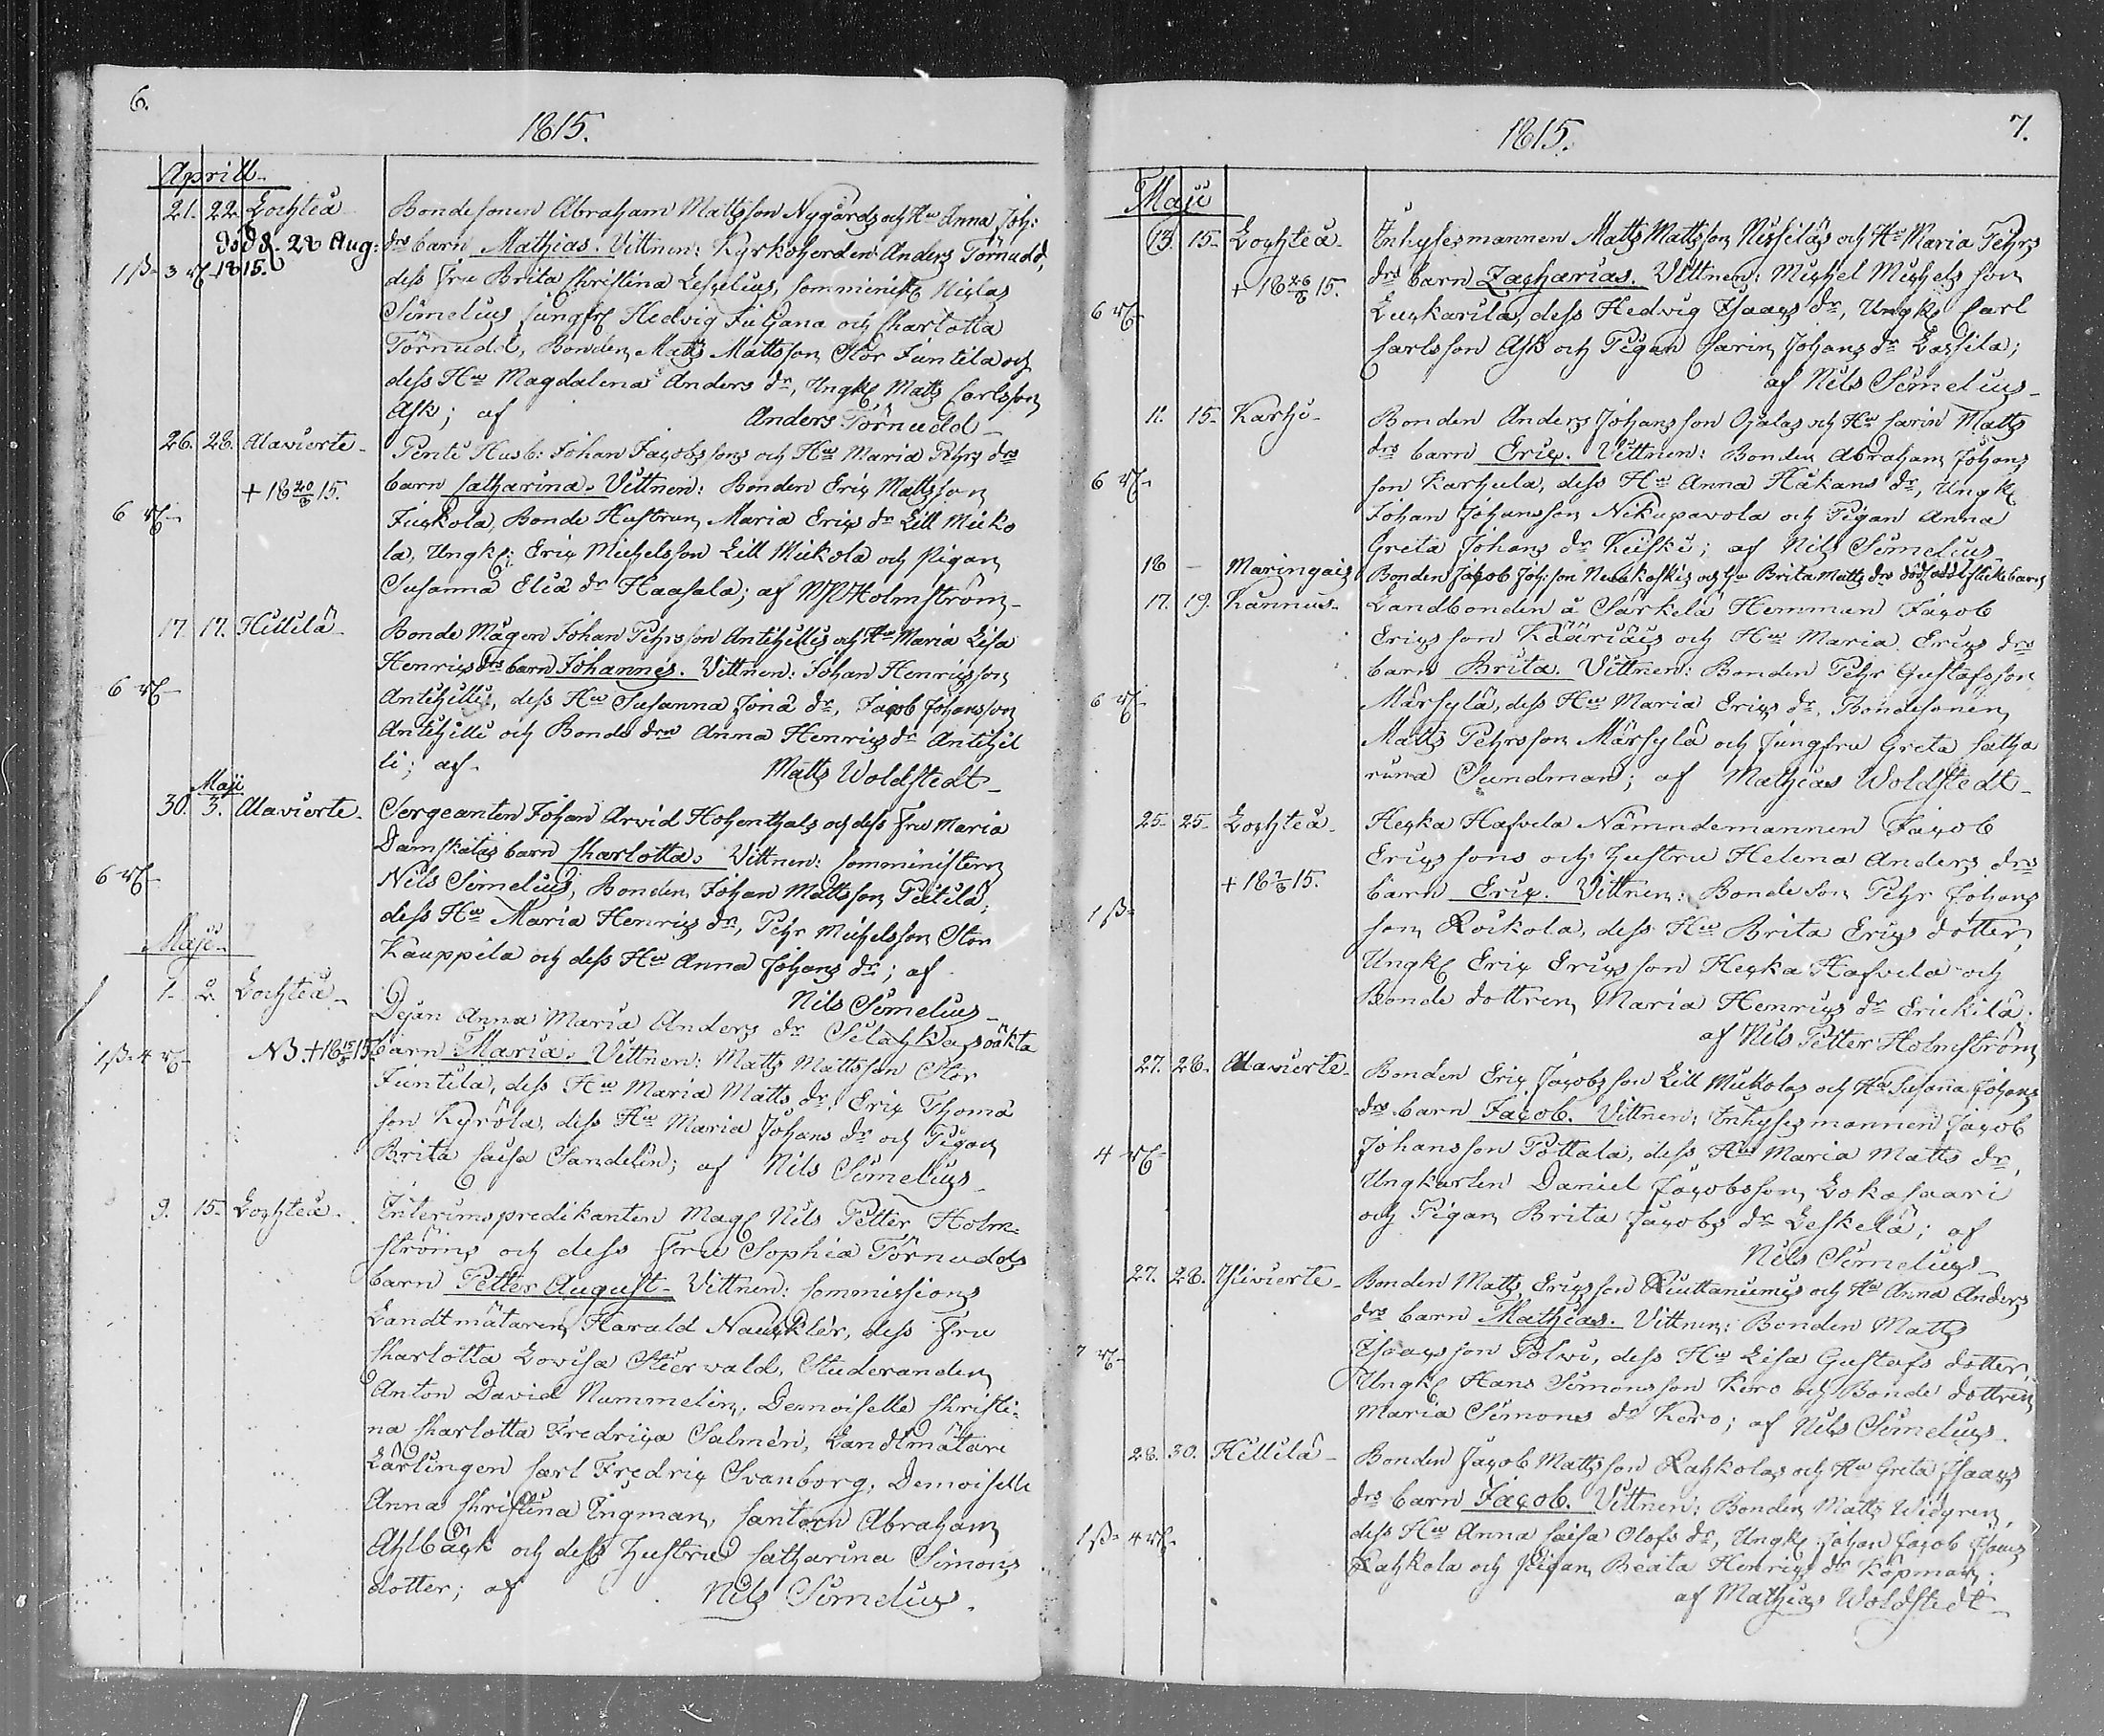 6.
1815.
Aprill
21. 22. Lochteå Bondesonen Abraham Mattsson Nygårds och Hu Anna Joh:
död d. 28 Aug: drs barn Mathias. Vittnen: Kyrkoherden Anders Törnudd,
1 ß 3 rs 1815. dess fru Brita Christina Leselius, Comminist Niclas
Simelius Jungfr Hedvig Juliana och Charlotta
Törnudd, Bonden Matts Mattsson Stor Juntila och
dess Hu Magdalena Anders dr, Ungk Matts Carlsson
Ask; af Anders Törnudd
26. 28. Alavierte Pente Husb: Johan Jacobssons och Hu Maria Pehrs drs
+ 18 20/8 15. barn Catharina. Vittnen: Bonden Eric Mattsson
6 rs Juckola, Bonde Hustrun Maria Erics dr Lill Micko
la, Ungk: Eric Michelsson Lill Mickola och Pigan
Susanna Elia dr Haasala; af NPHolmström
17. 17. Hillilä Bonde Mågen Johan Pehrsson Antihillis och Hu Maria Lisa
Henrics drs barn Johannes. Vittnen: Johan Henricsson
6 rs Antihilli, dess Hu Susanna Jona dr, Jacob Johansson
Antihilli och Bonde drn Anna Henrics dr Antihil
li; af Matts Woldstedt
Maji
30. 3. Alavierte Sergeanten Johan Arvid Hohenthals och dess Fru Maria
Damskatas barn Charlotta. Vittnen: Comministern
6 rs Nils Simelius, Bonden Johan Mattsson Pietilä,
dess Hu Maria Henrics dr, Pehr Michelsson Stor
Kauppila och dess Hu Anna Johans dr; af
Maji Nils Simelius
1. 2. Lochteå Dejan Anna Maria Anders dr Selachkas oäkta
1 ß 4 rs NB. + 18 15/5 15 barn Maria. Vittnen: Matts Mattsson Stor
Juntila, dess Hu Maria Matts dr, Eric Thoma
son Kyrölä, dess Hu Maria Johans dr och Pigan
Brita Caisa Sandelin; af Nils Simelius
9. 15. Lochteå Interimspredikanten Mag Nils Petter Holm-
ströms och dess Fru Sophia Törnudds
barn Petter August. Vittnen: Commissions
Landtmätaren Harald Nauckler, dess Fru
Charlotta Lovisa Stierwald, Studeranden
Anton David Nummelin, Demoiselle Christi-
na Charlotta Fredrica Salmén, Landtmätare
Lärlingen Carl Fredric Svanborg, Demoiselle
Anna Christina Ingman, Cantorn Abraham
Ahlbäck och dess Hustru Catharina Simons
dotter; af Nils Simelius.
7.
1815.
Maji
13. 15. Lochteå Inhysesmannen Matts Mattsson Nissiläs och Hu Maria Pehrs
+ 18 26/8 15. drs barn Zacharias. Vittnen: Michel Michelsson
6 rs Luckarila, dess Hedvig Isaacs dr, Ungk Carl
Carlsson Ask och Pigan Carin Johans dr Lassila;
af Nils Simelius
11. 15. Karhi Bonden Anders Johansson Ojalas och Hu Carin Matts
drs barn Eric. Vittnen: Bonden Abraham Johans
6 rs son Karhula, dess Hu Anna Håkans dr, Ungk
Johan Johansson Nikupavola och Pigan Anna
Greta Johans dr Kiiski; af Nils Simelius
18 – Maringais Bonden Jacob Joh:son och Hu Brita Matts drs dödfödt flickebarn
17. 19. Kannus Landbonden å Särkelä Hemman Jacob
Ericsson Kääriäis och Hu Maria Erics drs
barn Brita. Vittnen: Bonden Pehr Gustafsson
6 rs Märsylä, dess Hu Maria Erics dr, Bondesonen
Matts Pehrsson Märsylä och Jungfru Greta Catha
rina Sundman; af Mathias Woldstedt
25. 25. Lochteå Heska Hafvela Nämndemannen Jacob
Ericssons och hustru Helena Anders drs
+ 18 7/8 15. barn Eric. Vittnen: Bondeson Pehr Johans
1 ß son Roikola, dess Hu Brita Erics dotter,
Ungk Eric Ericsson Heska Hafvela och
Bonde dottren Maria Henrics dr Erickilä;
af Nils Petter Holmström
27. 28. Alavierte Bonden Eric Jacobsson Lill Mickolas och Hu Susana Johans
drs barn Jacob. Vittnen: Inhysesmannen Jacob
4 rs Johansson Pottala, dess Hu Maria Matts dr,
Ungkarlen Daniel Jacobsson Lokasaari
och Pigan Brita Jacobs dr Leskelä; af
Nils Simelius
27. 28. Ylivierte Bonden Matts Ericsson Riuttaniemis och Hu Anna Anders
drs barn Mathias. Vittnen: Bonden Matts
7 rs Isaacsson Polwi, dess Hu Lisa Gustafs dotter,
Ungk Hans Simonsson Kero och Bonde dottren
Maria Simons dr Kero; af Nils Simelius.
28. 30. Hillilä Bonden Jacob Mattsson Rahkolas och Hu Greta Isaacs
drs barn Jacob. Vittnen: Bonden Matts Widgren,
1 ß 4 rs dess Hu Anna Caisa Olofs dr, Ungk Johan Jacob Isaacs
Rahkola och Pigan Beata Henrics dr Köpman;
af Mathias Woldstedt